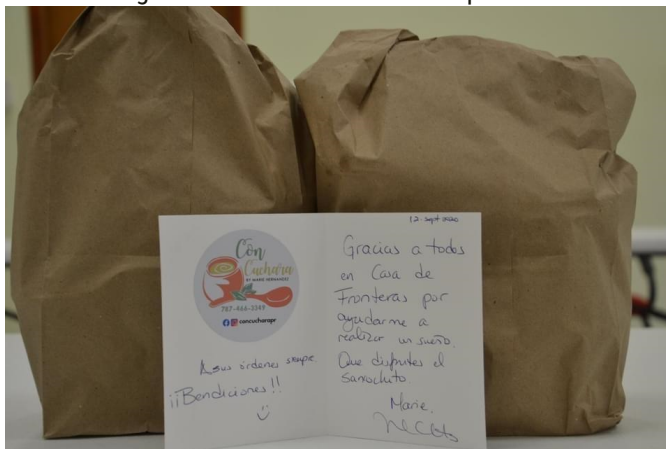 Côn
Cuchara
BY MARIE HERNANDEZ
787-466-3349
concucharapr
A sus órdenes siempre.
¡¡Bendiciones!!
12-sept-2020
Gracias a todos
en Casa de
Fronteras por
ayudarme a
realizar un sueño.
Que disfruten el
Sancochito.
Marie.